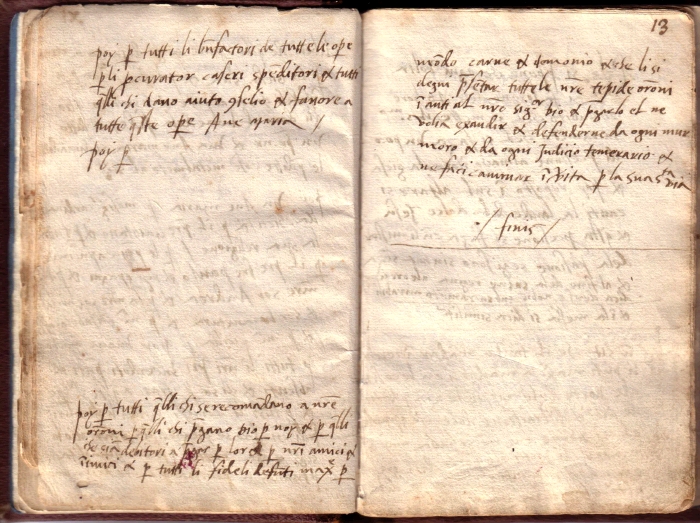 poj p̄ tutti li bn̄factori de tutte le ope
p̄ li pcurator casieri spēditori & tutti
q̄lli chi dano aiuto 9seglio & favore a
tutte q̄ste ope. Ave Maria
poj p̄
poj p̄ tutti q̄lli chi se recomādano a nr̄e
oroni p̄ q̄lli chi p̄gano dio p̄ noy & p̄ q̄lli
che siā debitori a p̄gar p̄ lor & p̄ nr̄i amici &
inimici & p̄ tutti li fideli defūti max̄ p̄
13
mōdo carne & domonio & che li si
degni p̄sētar tutte le nr̄e tepide oroni
īanti al nr̄o sig.or dio & pgarlo che ne
volia exaudir & defenderne da ogni mur
moro & da ogni Judicio temerario &
ne faci caminar ī vita p̄ la sua s.ta via
finis